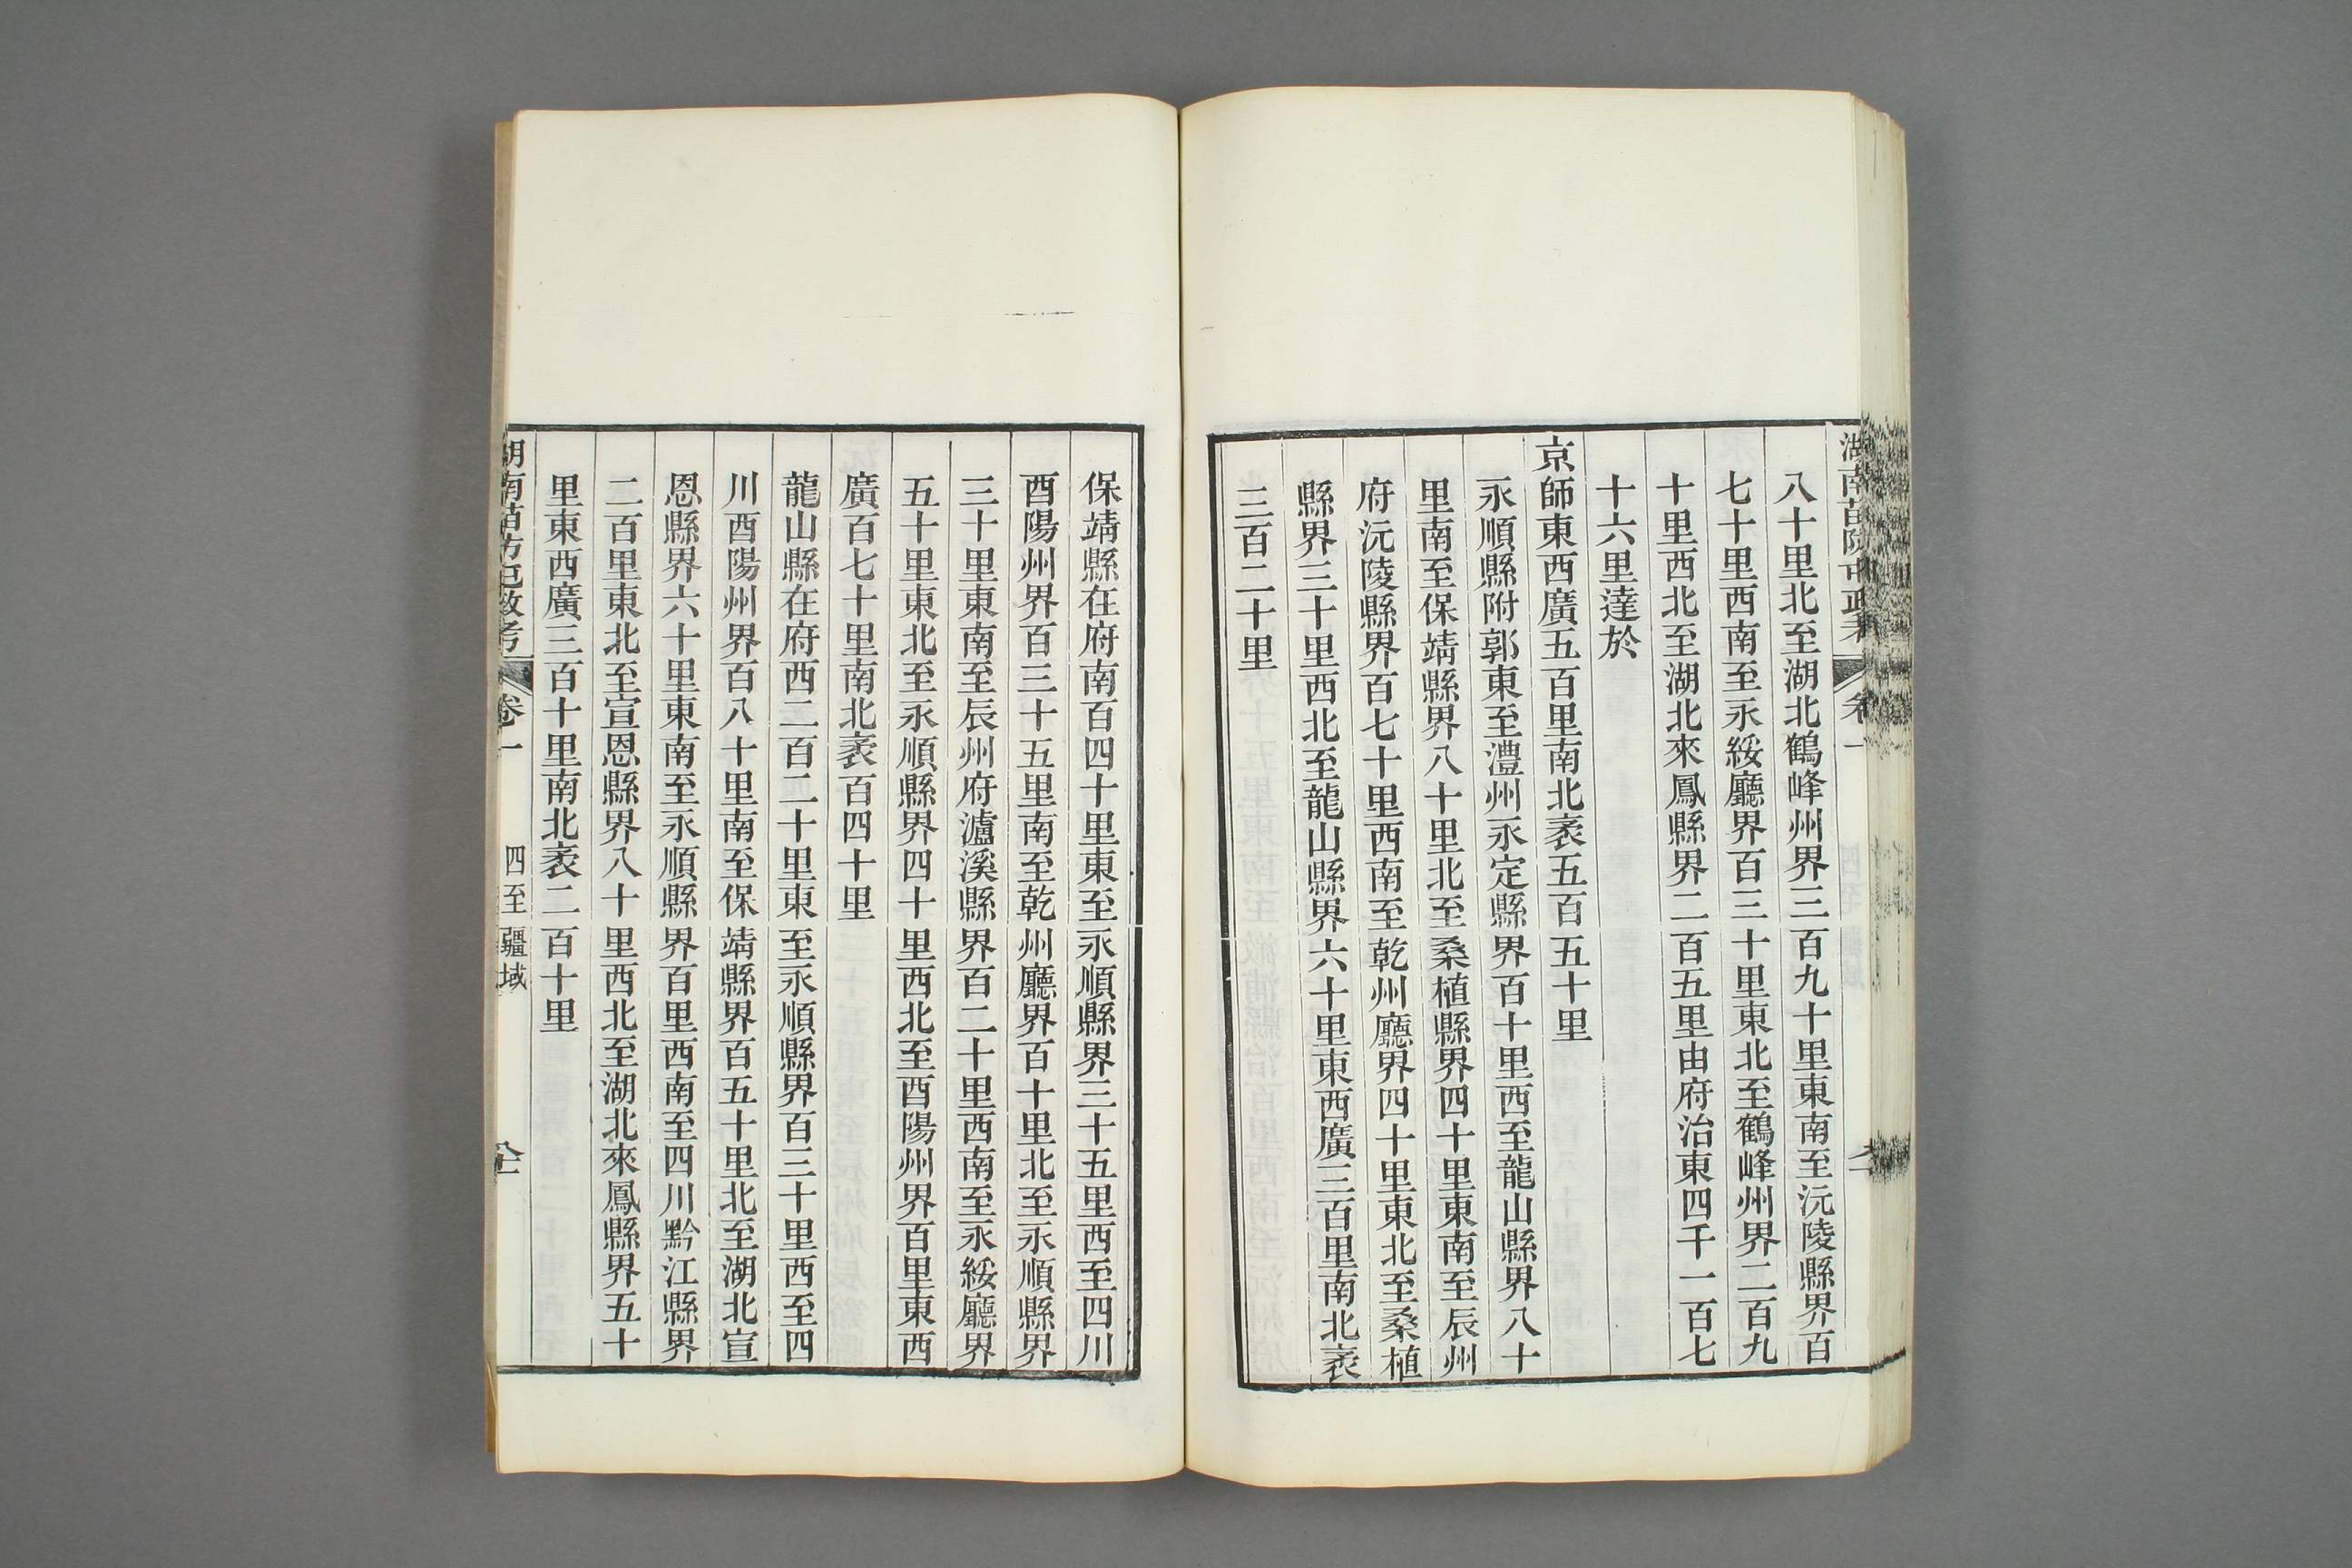 八十里北至湖北鶴峰州界三百九十里東南至沅陵縣界百
七十里西南至永綏廳界百三十里東北至鶴峰州界二百九
十里西北至湖北來鳳縣界二百五里由府治東四千一百七
十六里達於
京師東西廣五百里南北袤五百五十里
永順縣附郭東至澧州永定縣界百十里西至龍山縣界八十
里南至保靖縣界八十里北至桑植縣界四十里東南至辰州
府沅陵縣界百七十里西南至乾州廳界四十里東北至桑植
縣界三十里西北至龍山縣界六十里東西廣三百里南北袤
三百二十里
保靖縣在府南百四十里東至永順縣界三十五里西至四川
酉陽州界百三十五里南至乾州廳界百十里北至永順縣界
三十里東南至辰州府瀘溪縣界百二十里西南至永綏廳界
五十里東北至永順縣界四十里西北至酉陽州界百里東西
廣百七十里南北袤百四十里
龍山縣在府西二百二十里東至永順縣界百三十里西至四
川酉陽州界百八十里南至保靖縣界百五十里北至湖北宣
恩縣界六十里東南至永順縣界百里西南至四川黔江縣界
二百里東北至宣恩縣界八十里西北至湖北來鳳縣界五十
里東西廣三百十里南北袤二百十里
湖南苗防屯政考 卷一 四至疆域